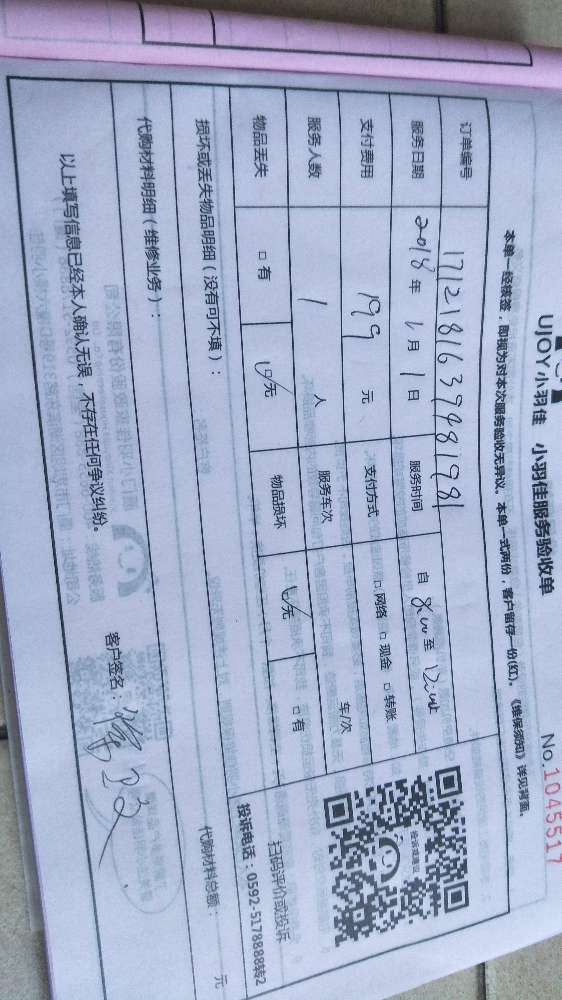 UJOY小羽佳 小羽佳服务验收单
No.1045517
本单一经核签，即视为对本次服务验收无异议。本单一式两份，客户留存一份(红)。《维保须知》详见背面。
订单编号 17121816379481981
服务日期 2018年1月1日 服务时间 自 至
支付费用 199 元 支付方式 □网络 □现金 □转账
服务人数 1 人 服务车次 车/次
物品丢失 □有 无 物品损坏 无 □有
经诉或建议
扫码评价或投诉
投诉电话：0592-5178888转2
损坏或丢失物品明细（没有可不填）：
代购材料明细（维修业务）： 代购材料总额： 元
以上填写信息已经本人确认无误，不存在任何争议纠纷。
客户签名：